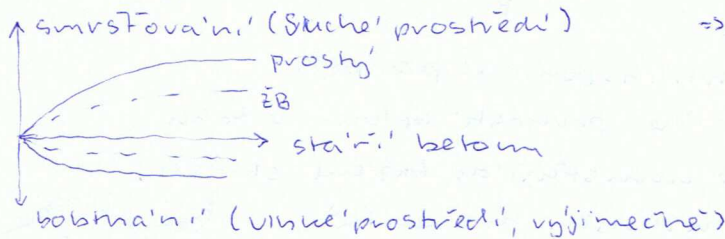 smršťování (suché prostředí) =>
prostý
ŽB
stáří betonu
bobtnání (vlhké prostředí, vyjímečné)